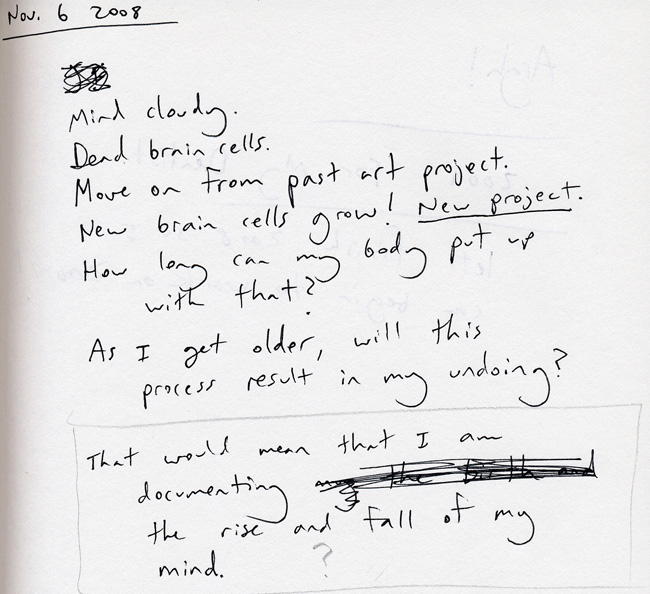 Nov. 6 2008
Mind cloudy.
Dead brain cells.
Move on from past art project.
New brain cells grow! New project.
How long can my body put up
with that?
As I get older, will this
process result in my undoing?
That would mean that I am
documenting my the birth and
the rise and fall of my
mind. ?